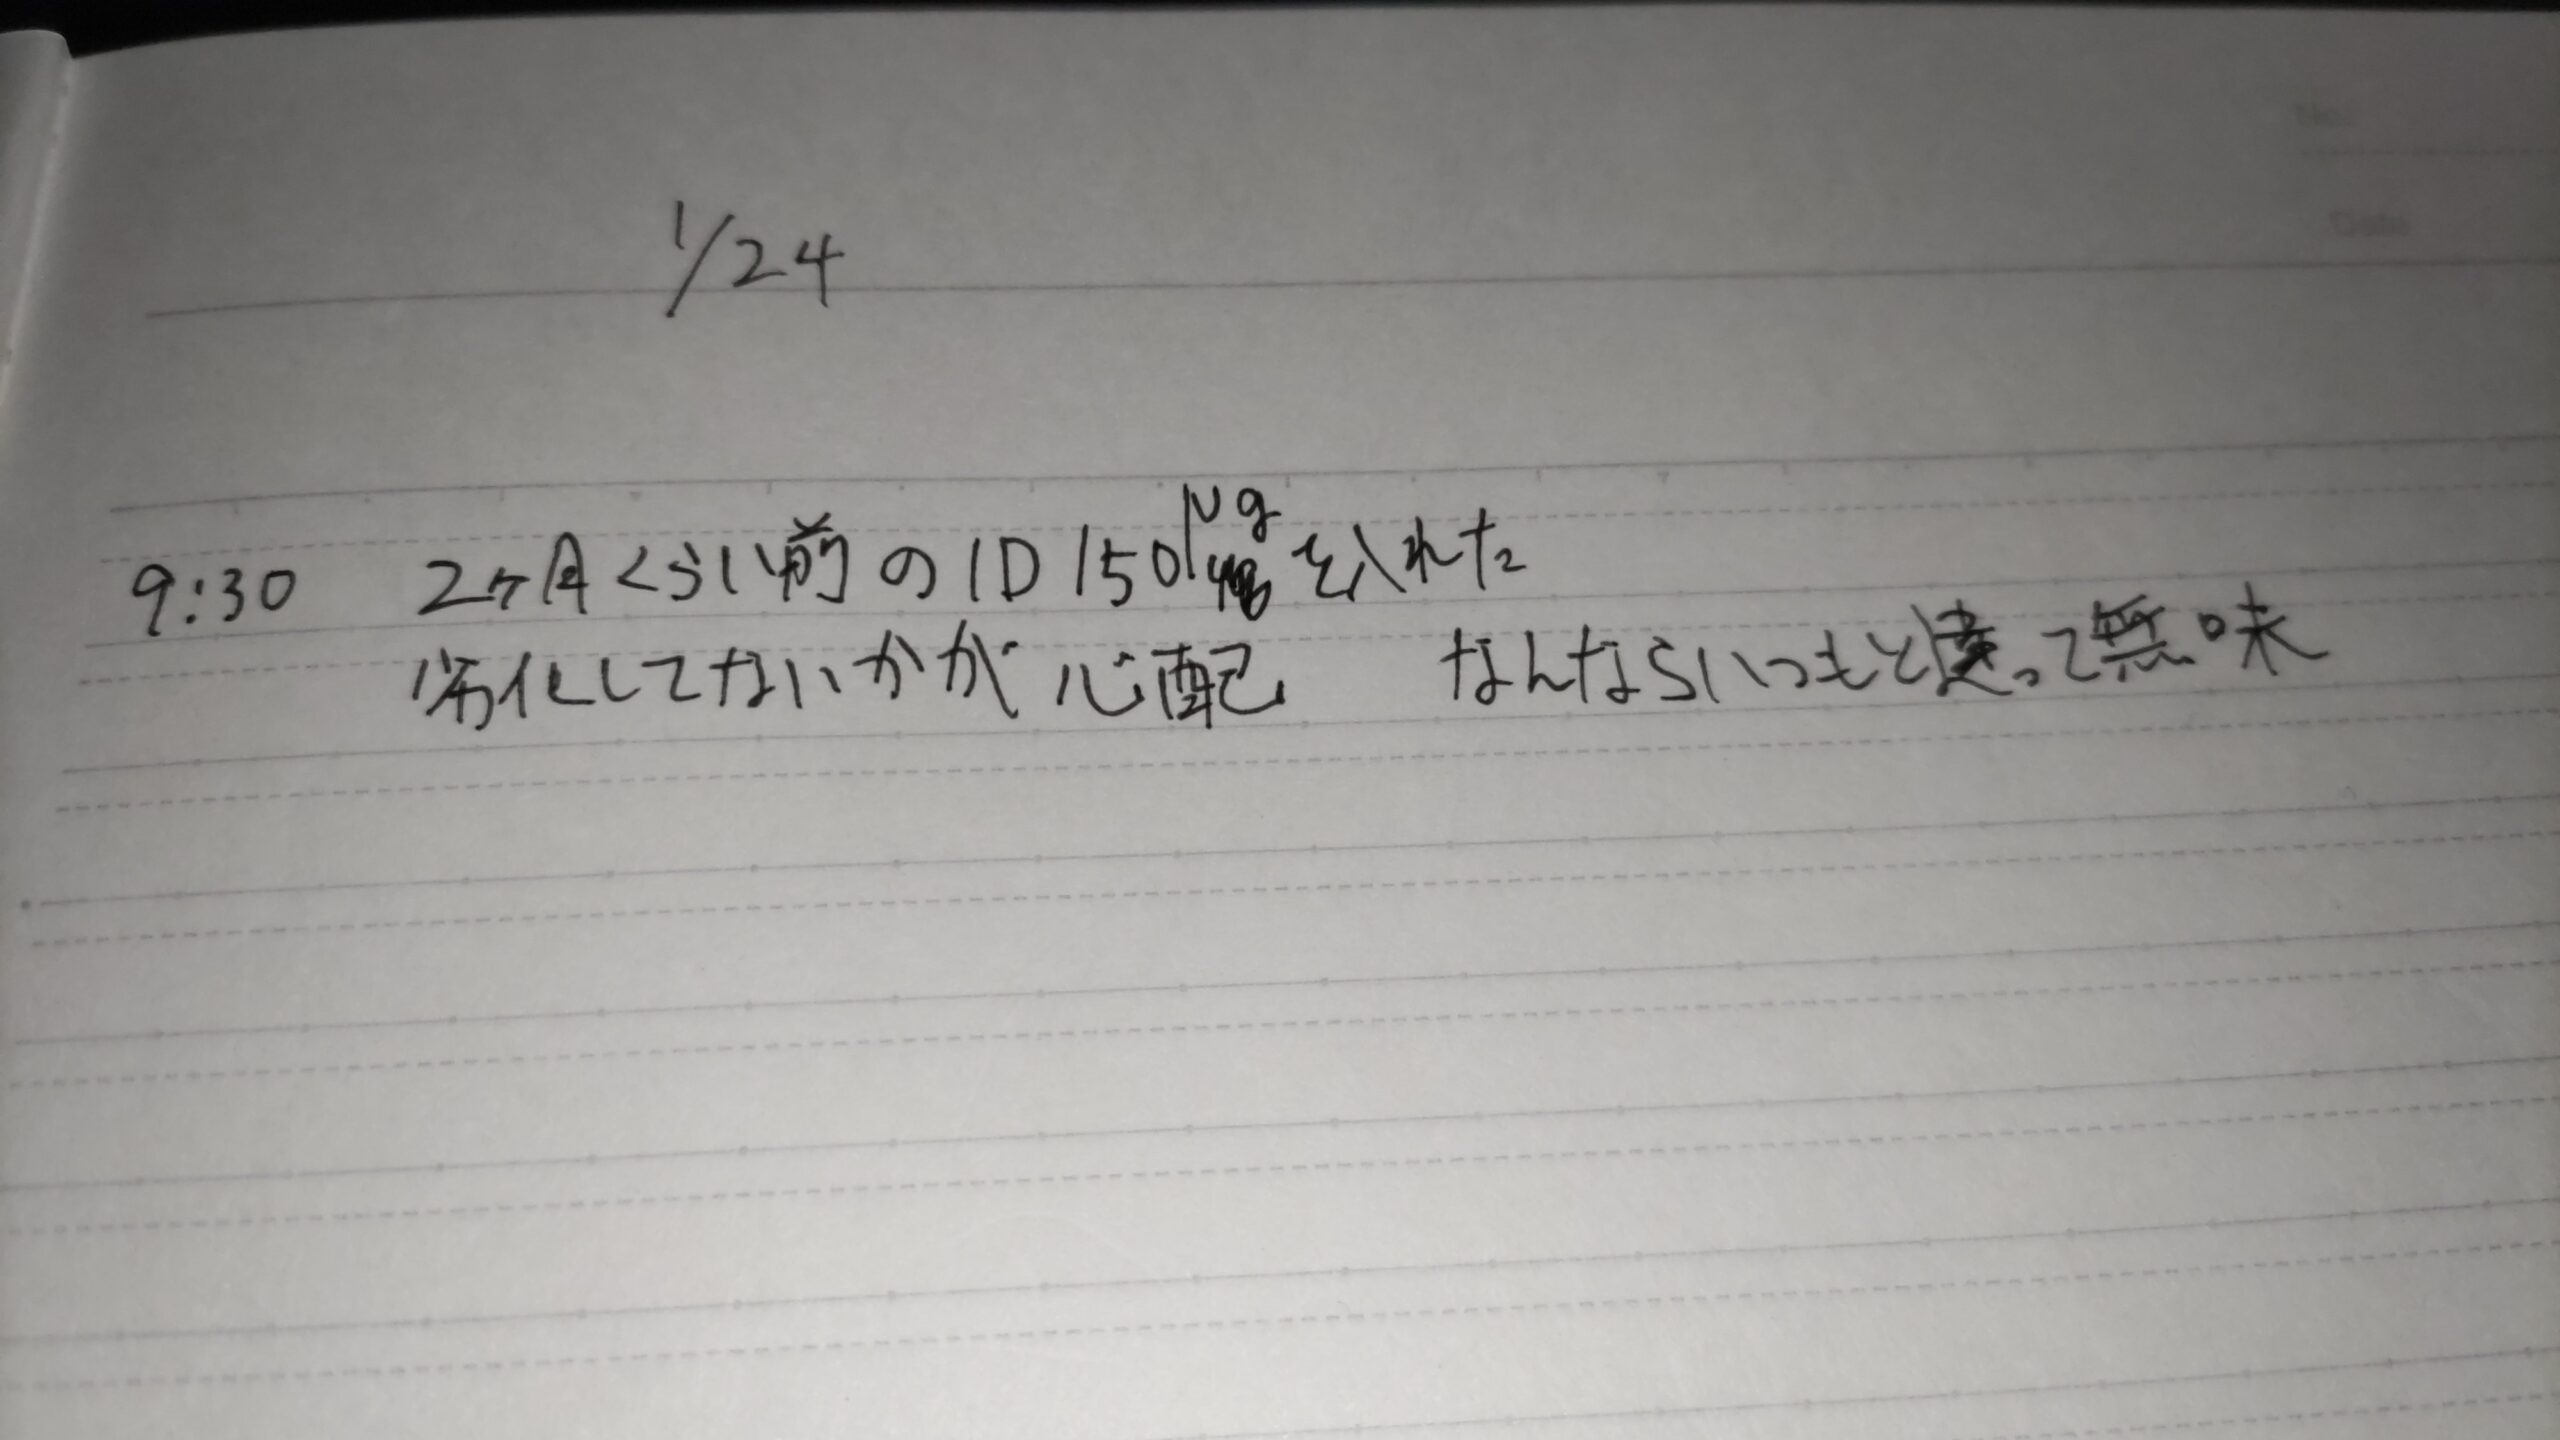 1/24
9:30 2ヶ月くらい前の1D 150μgを入れた
劣化してないかが心配 なんならいつもと違って無味